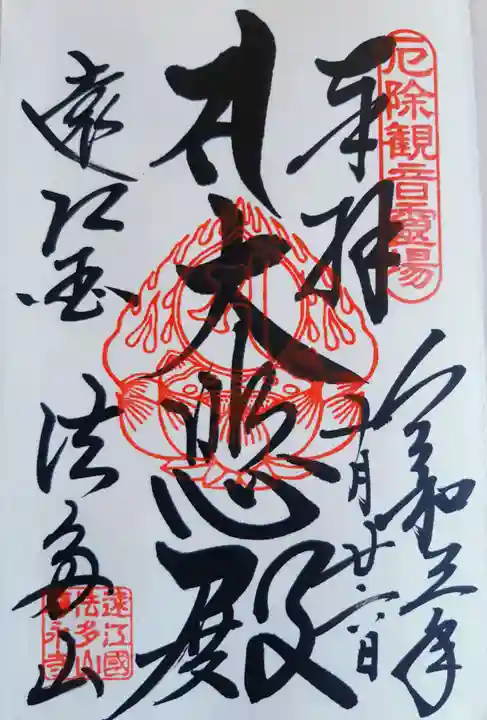 厄除観音靈場
奉拝
令和三年
十月廿六日
大悲殿
遠江國 法多山
遠江國
法多山
尊永寺